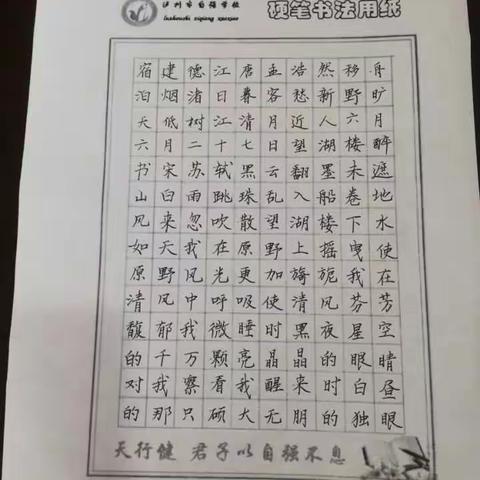 泸州市自强学校
luzhoushi ziqiang xuexiao
硬笔书法用纸
宿建德江唐孟浩然移舟
泊烟渚日暮客愁新野旷
天低树江清月近人六月
六月二十七日望湖楼醉
书宋苏轼黑云翻墨未遮
山白雨跳珠乱入船卷地
风来忽吹散望湖楼下水
如天我在原野上摇曳使
原野风光更加旖旎我在
清风中呼吸使清风芬芳
馥郁我微睡时黑夜星空
的千万颗亮晶晶的眼睛
对我察看我醒来时白昼
的那只硕大无朋的独眼
天行健 君子以自强不息